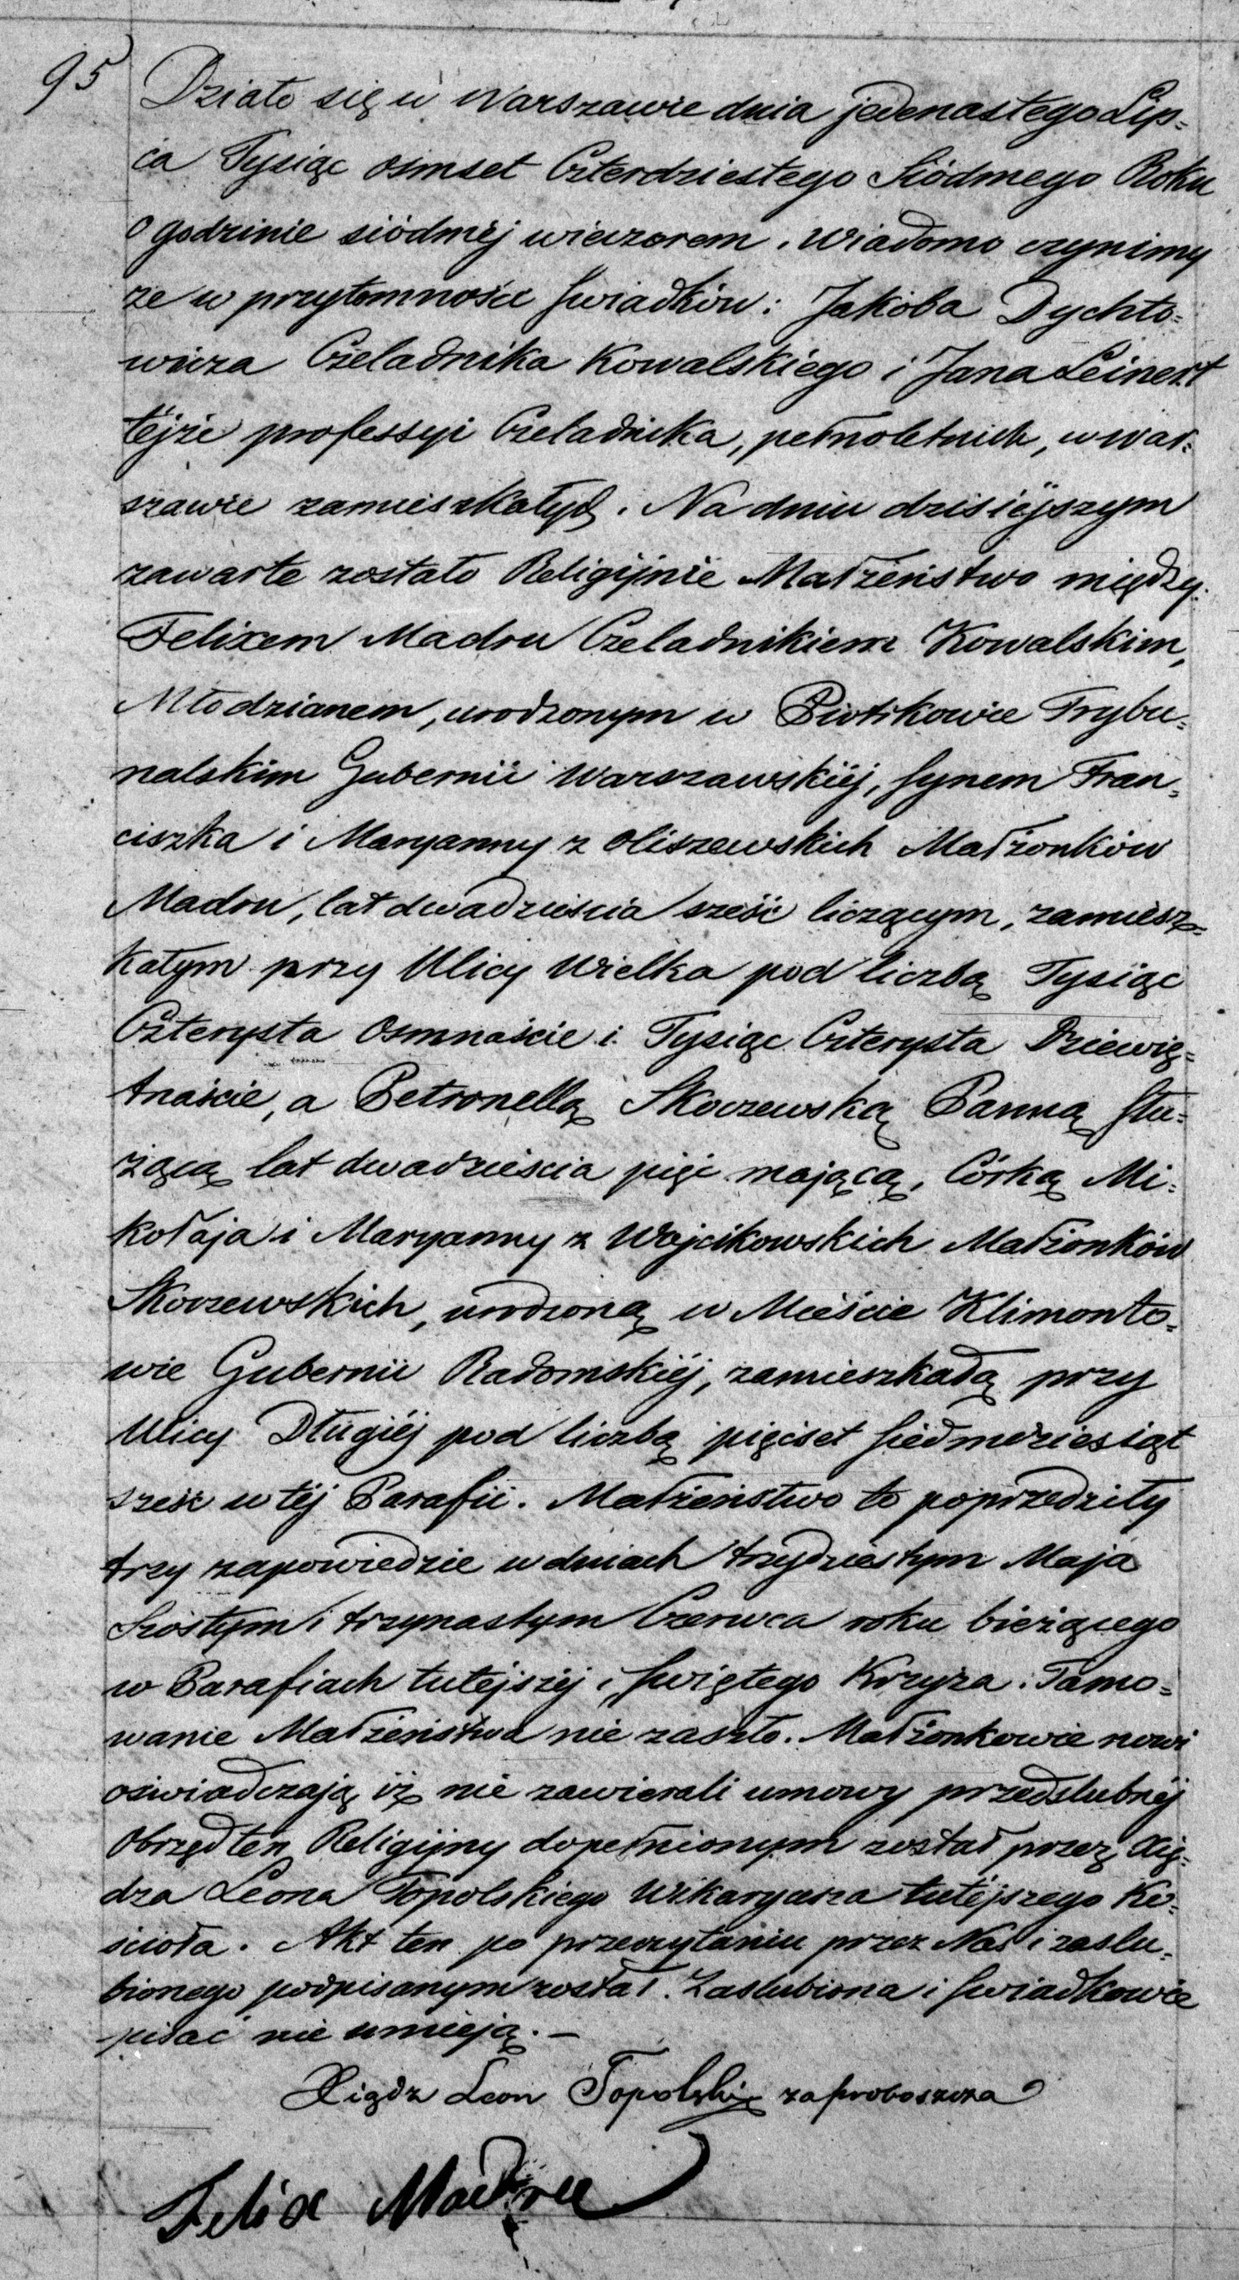 95
Działo się w Warszawie dnia jedenastego Lip=
ca Tysiąc osmset Czterdziestego Siódmego Roku
o godzinie siódméj wieczorem. Wiadomo czynimy
że w przytomności świadków: Jakóba Dychto=
wicza Czeladnika Kowalskiego i Jana Leinert
téjże professyi Czeladnika, pełnoletnich, w War=
szawie zamieszkałych. Na dniu dzisiéjszym
zawarte zostało Religijnie Małżeństwo między
Felixem Madru Czeladnikiem Kowalskim,
Młodzianem, urodzonym w Piotrkowie Trybu=
nalskim Gubernii Warszawskiéj, synem Fran=
ciszka i Maryanny z Oliszewskich Małżonków
Madru, lat dwadzieścia sześć liczącym, zamiesz=
kałym przy Ulicy Wielka pod liczbą Tysiąc
Czterysta Osmnaście i Tysiąc Czterysta Dziewię=
tnaście, a Petronellą Skoczewską Panną słu=
żącą lat dwadzieścia pięć mającą, Córką Mi=
kołaja i Maryanny z Wojcikowskich Małżonków
Skoczewskich, urodzoną w Mieście Klimonto=
wie Gubernii Radomskiéj, zamieszkałą przy
Ulicy Długiéj pod liczbą pięćset siedmdziesiąt
sześć w téj Parafii. Małżeństwo to poprzedziły
trzy zapowiedzie w dniach trzydziestym Maja
Szóstym i trzynastym Czerwca roku bieżącego
w Parafiach tutéjszéj i Świętego Krzyża. Tamo=
wanie Małżeństwa nie zaszło. Małżonkowie nowi
oświadczają iż nie zawierali umowy przedślubnéj
Obrzęd ten Religijny dopełnionym został przez Xię=
dza Leona Topolskiego Wikaryusza tutéjszego Ko=
ścioła. Akt ten po przeczytaniu przez Nas i zaślu=
bionego podpisanym został. Zaślubiona i świadkowie
pisać nie umieją. —
Xiądz Leon Topolski za proboszcza
Felix Madru